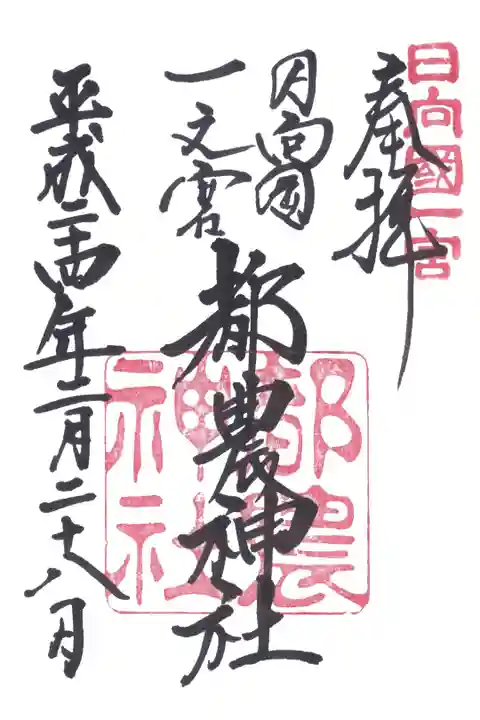 日向國一宮
奉拝
日向国
一之宮
都農神社
都農神社
平成二十四年二月二十八日